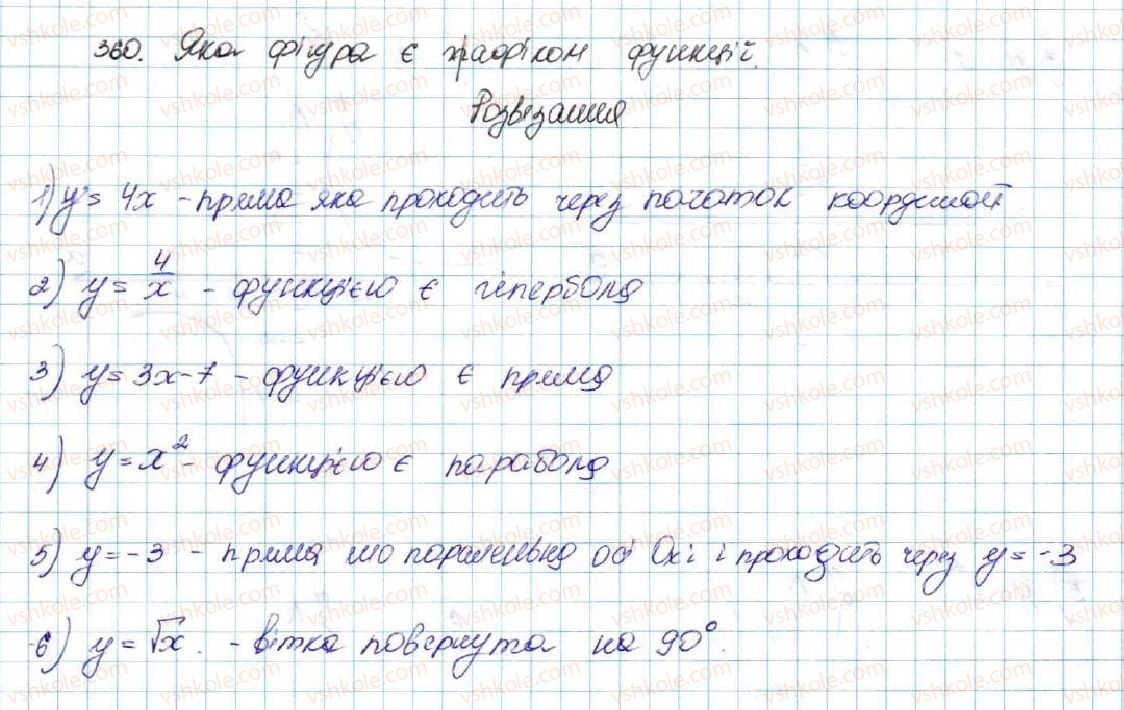 360. Яка фігура є графіком функції.
Розвязання
1) y = 4x - пряма яка проходить через початок координат
2) y = 4/x - функцією є гіпербола
3) y = 3x - 7 - функцією є пряма
4) y = x² - функцією є парабола
5) y = -3 - пряма що паралельна осі Ox і проходить через y = -3
6) y = √x. - вітка повернута на 90°.